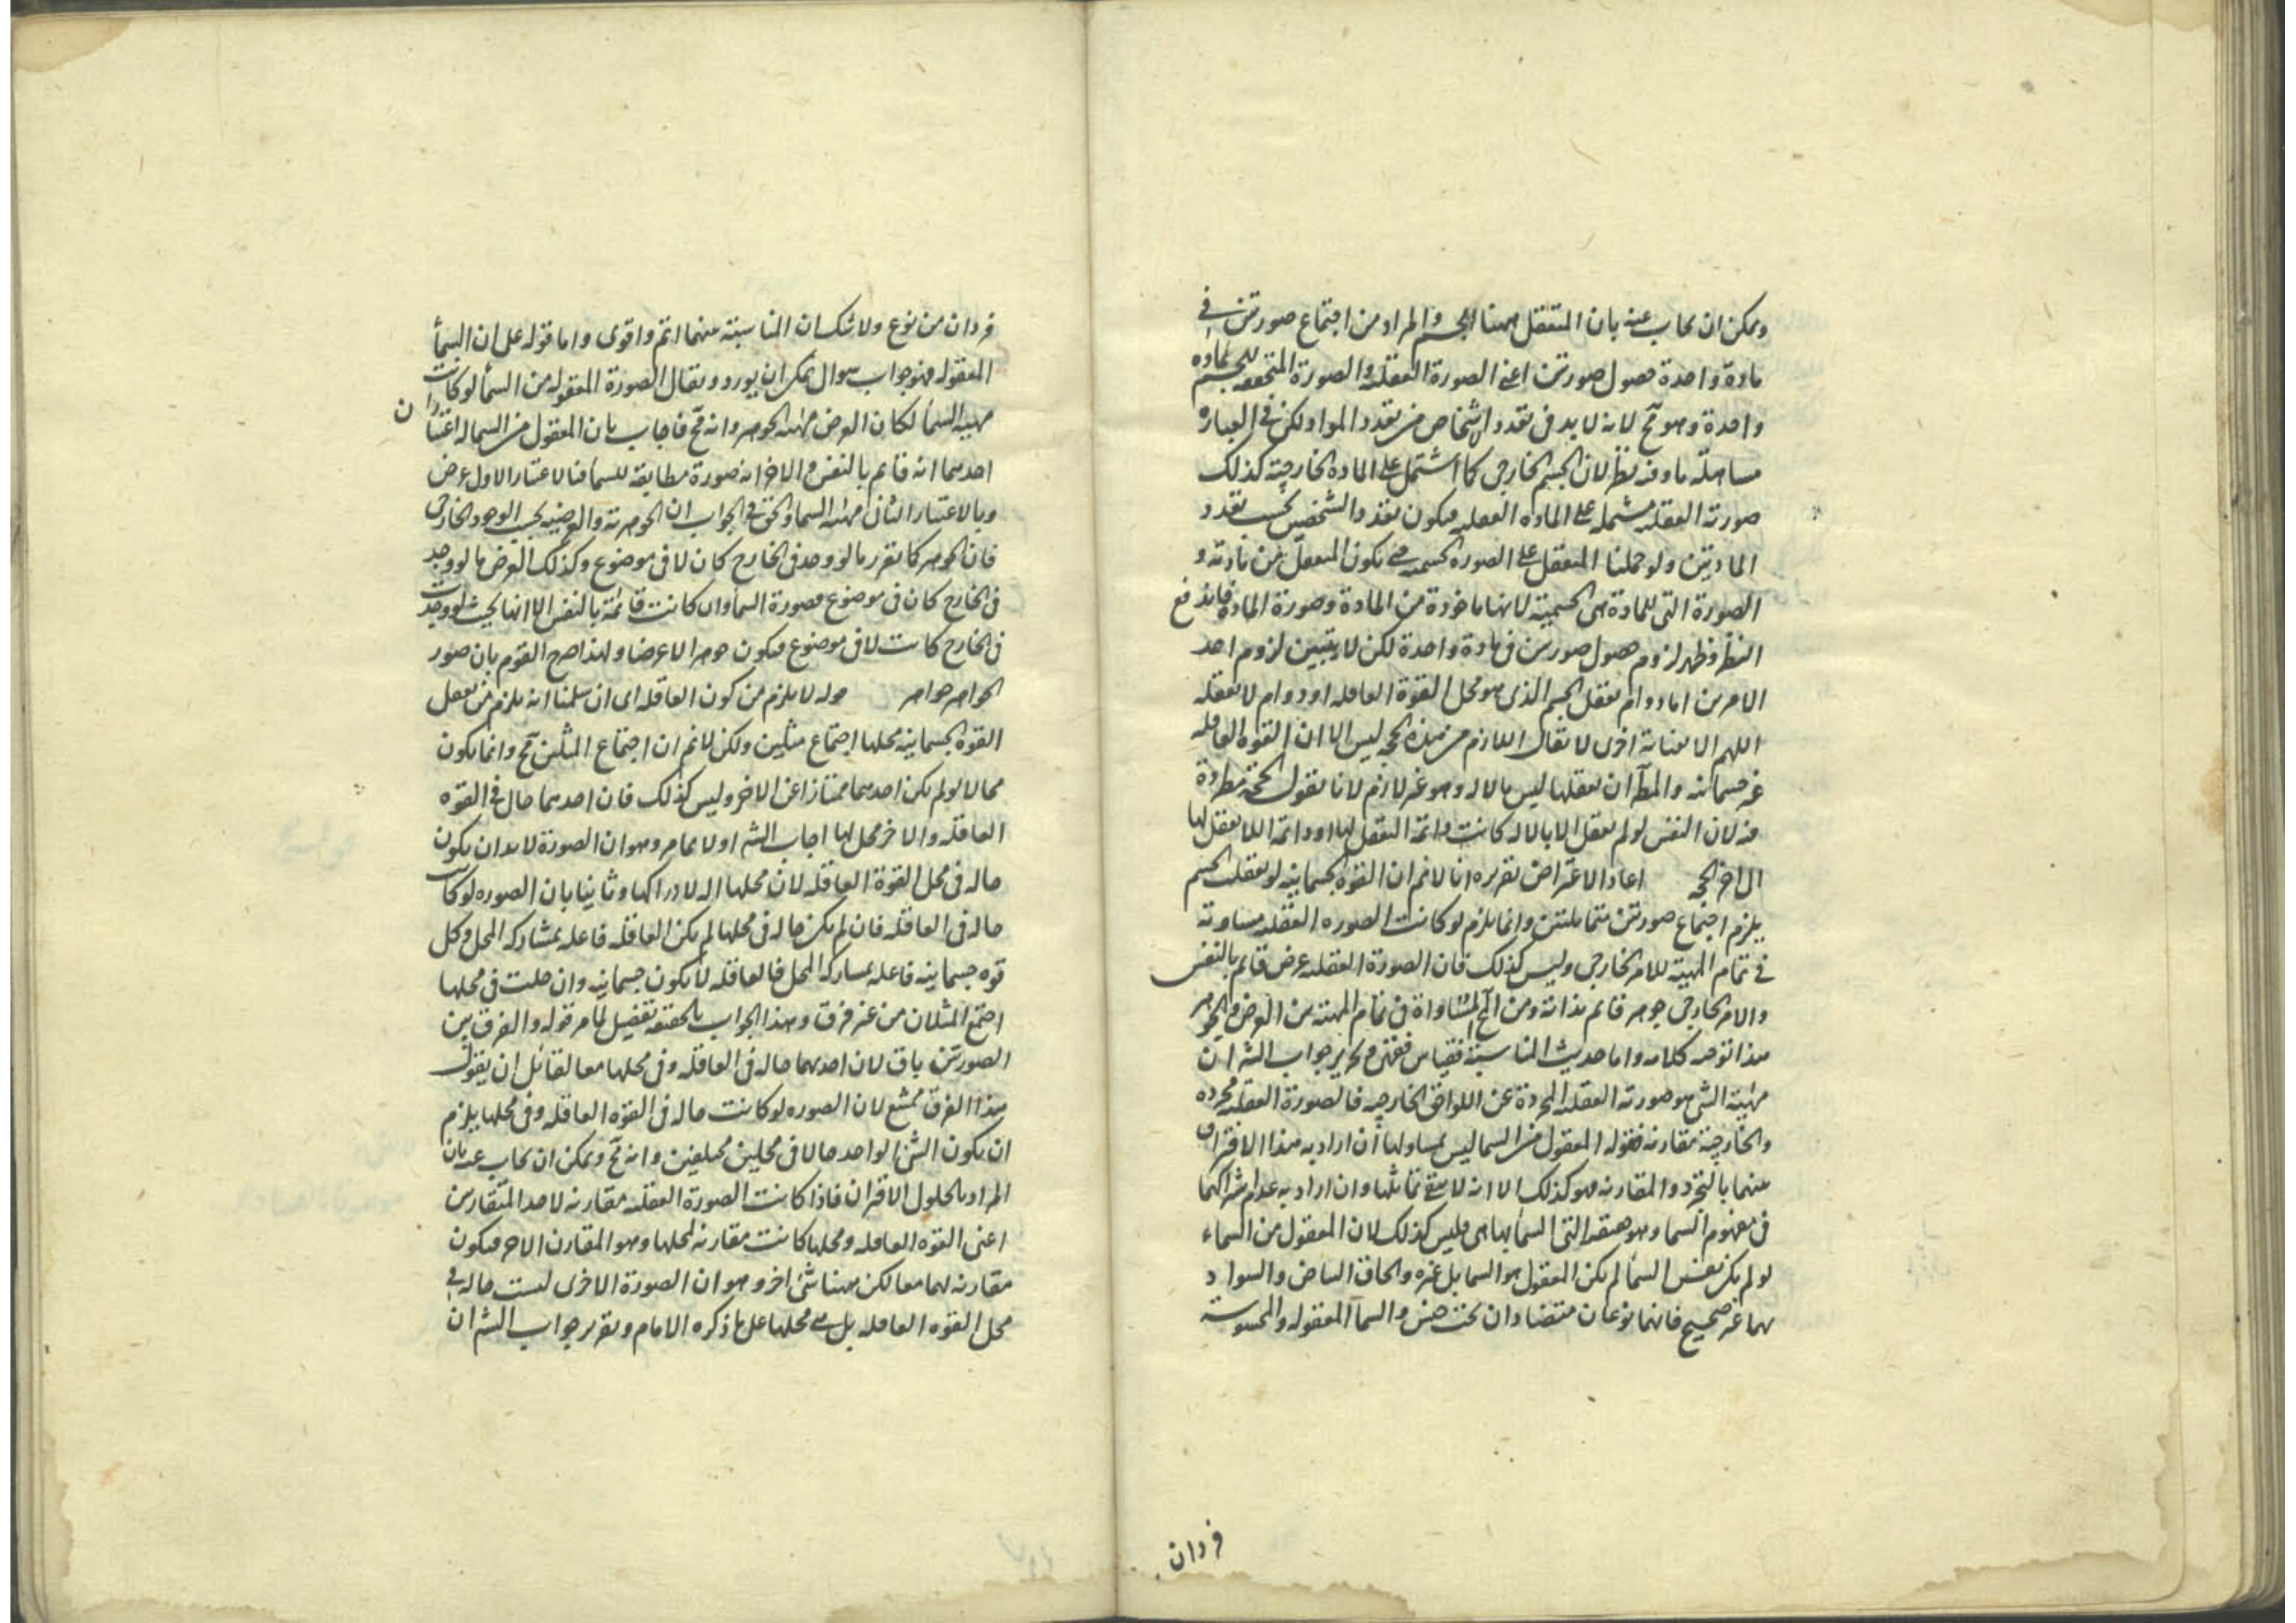 ويمكن ان يجاب عنه بان المتعقل ههنا الجسم والمراد من اجتماع صورتين في
مادة واحدة حصول صورتين اعني الصورة العقلية والصورة المتحققة للجسم بمادة
واحدة وهو مح لانه لابد في تعدد الاشخاص من تعدد المواد لكن في العبارة
مساهلة ما وفيه نظر لان الجسم الخارجي كما اشتمل على المادة الخارجية كذلك
صورته العقلية مشتملة على المادة العقلية فيكون تعدد الشخص بحسب تعدد
المادتين ولو حملنا المتعقل على الصورة الجسمية حتى يكون المتعقل من مادته و
الصورة التي للمادة هي الجسمية لانها ماخوذة من المادة وصورة المادة فاندفع
النظر وظهر لزوم حصول صورتين في مادة واحدة لكن لا يتبين لزوم احد
الامرين اما دوام تعقل الجسم الذي هو محل القوة العاقلة او دوام لا تعقله
اللهم الا بعناية اخرى لا يقال اللازم من هذه الحجة ليس الا ان القوة العاقلة
غير جسمانية والمط ان تعقلها ليس بالالة وهو غير لازم لانا نقول الحجة مطردة
فيه لان النفس لو لم تعقل الا بالالة كانت دائمة التعقل لها او دائمة اللاتعقل لها
الى اخر الحجة اعاد الاعتراض تقريره انا لانم ان القوة الجسمانية لو تعقلت الجسم
يلزم اجتماع صورتين متماثلتين وانما يلزم لو كانت الصورة العقلية مساوية
في تمام المهية للامر الخارجي وليس كذلك فان الصورة العقلية عرض قائم بالنفس
والامر الخارجي جوهر قائم بذاته ومن المح المساواة في تمام المهية بين العرض والجوهر
هذا توجيه كلامه واما حديث المناسبة فقياس فقهي وتحرير جواب الشه ان
مهية الشي هو صورته العقلية المجردة عن اللواحق الخارجية فالصورة العقلية مجردة
والخارجية مقارنة فقوله المعقول من السما ليس بمساو لها ان اراد به هذا الافتراق
بينهما بالتجرد والمقارنة فهو كذلك الا انه لا ينفي تماثلها وان اراد به عدم اشتراكهما
في مفهوم السما وهو حقيقة التي السما بها هي فليس كذلك لان المعقول من السماء
لو لم يكن نفس السما لم يكن المعقول هو السما بل غيره والحاق البياض والسواد
بهما غير صحيح فانهما نوعان متضادان تحت جنس والسما المعقولة والمحسوسة
فردان
فردان من نوع ولا شك ان المناسبة بينهما اتم واقوى واما قوله على ان السما
المعقولة فهو جواب سوال يمكن ان يورد ويقال الصورة المعقولة من السما لو كانت
مهية السما لكان العرض مهية الجوهر وانه مح فاجاب بان المعقول من السما له اعتباران
احدهما انه قائم بالنفس والاخر انه صورة مطابقة للسما فبالاعتبار الاول عرض
وبالاعتبار الثاني مهية السما والحق في الجواب ان الجوهرية والعرضية بحسب الوجود الخارجي
فان الجوهر كما تقرر ما لو وجد في الخارج كان لا في موضوع وكذلك العرض ما لو وجد
في الخارج كان في موضوع فصورة السما وان كانت قائمة بالنفس الا انها بحيث لو وجدت
في الخارج كانت لا في موضوع فيكون جوهرا لا عرضا ولهذا صرح القوم بان صور
الجواهر جواهر قوله لا يلزم من كون العاقلة اي ان سلمنا انه يلزم من تعقل
القوة الجسمانية محلها اجتماع مثلين ولكن لانم ان اجتماع المثلين مح وانما يكون
محالا لو لم يكن احدهما ممتازا عن الاخر وليس كذلك فان احدهما حال في القوة
العاقلة والاخر محل لها اجاب الشه اولا بما مر وهو ان الصورة لابد ان يكون
حالة في محل القوة العاقلة لان محلها الة لادراكها وثانيا بان الصورة لو كانت
حالة في العاقلة فان لم يكن حالة في محلها لم يكن العاقلة فاعلة بمشاركة المحل وكل
قوة جسمانية فاعلة بمشاركة المحل فالعاقلة لا يكون جسمانية وان حلت في محلها
اجتمع المثلان من غير فرق وهذا الجواب بالحقيقة تفصيل لما مر قوله والفرق بين
الصورتين باق لان احدهما حالة في العاقلة وفي محلها معا لقائل ان يقول
هذا الفرق ممتنع لان الصورة لو كانت حالة في القوة العاقلة وفي محلها يلزم
ان يكون الشي الواحد حالا في محلين مختلفين وانه مح ويمكن ان يجاب عنه بان
المراد بالحلول الاقتران فاذا كانت الصورة العقلية مقارنة لاحد المتقارنين
اعني القوة العاقلة ومحلها كانت مقارنة لمحلها وهو المقارن الاخر فيكون
مقارنة لهما معا لكن ههنا شئ اخر وهو ان الصورة الاخرى ليست حالة في
محل القوة العاقلة بل هي محلها على ما ذكره الامام وتقرير جواب الشه ان